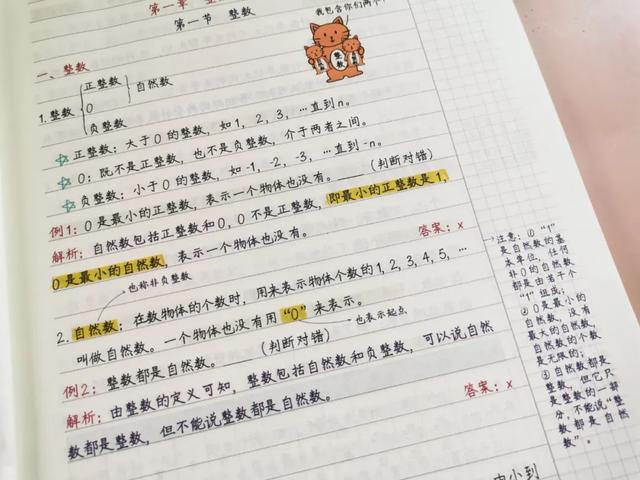 第一章
第一节 整数
我包含你们两个!
整数
一、整数
1.整数
正整数
0
负整数
自然数
☆正整数：大于0的整数，如1，2，3，…直到n。
☆0；既不是正整数，也不是负整数，介于两者之间。
☆负整数：小于0的整数，如-1，-2，-3，…直到-n。
例1：0是最小的正整数，表示一个物体也没有。____(判断对错)
解析：自然数包括正整数和0，0不是正整数，即最小的正整数是1，
0是最小的自然数，表示一个物体也没有。 答案：×
也称非负整数
2.自然数：在数物体的个数时，用来表示物体个数的1，2，3，4，5，…
叫做自然数。一个物体也没有用“0”来表示。
也表示起点
例2：整数都是自然数。____(判断对错)
解析：由整数的定义可知，整数包括自然数和负整数，可以说自然
数都是整数，但不能说整数都是自然数。 答案：×
注意：①“1”
是自然数的基
本单位，任何
非0的自然数
都是由若干个
“1”组成；
②0是最小的
自然数，没有
最大的自然数，
自然数的个数
是无限的；
③自然数都是
整数，但它只
是整数的一部
分，不能说“整
数都是自然
数”。
中小到